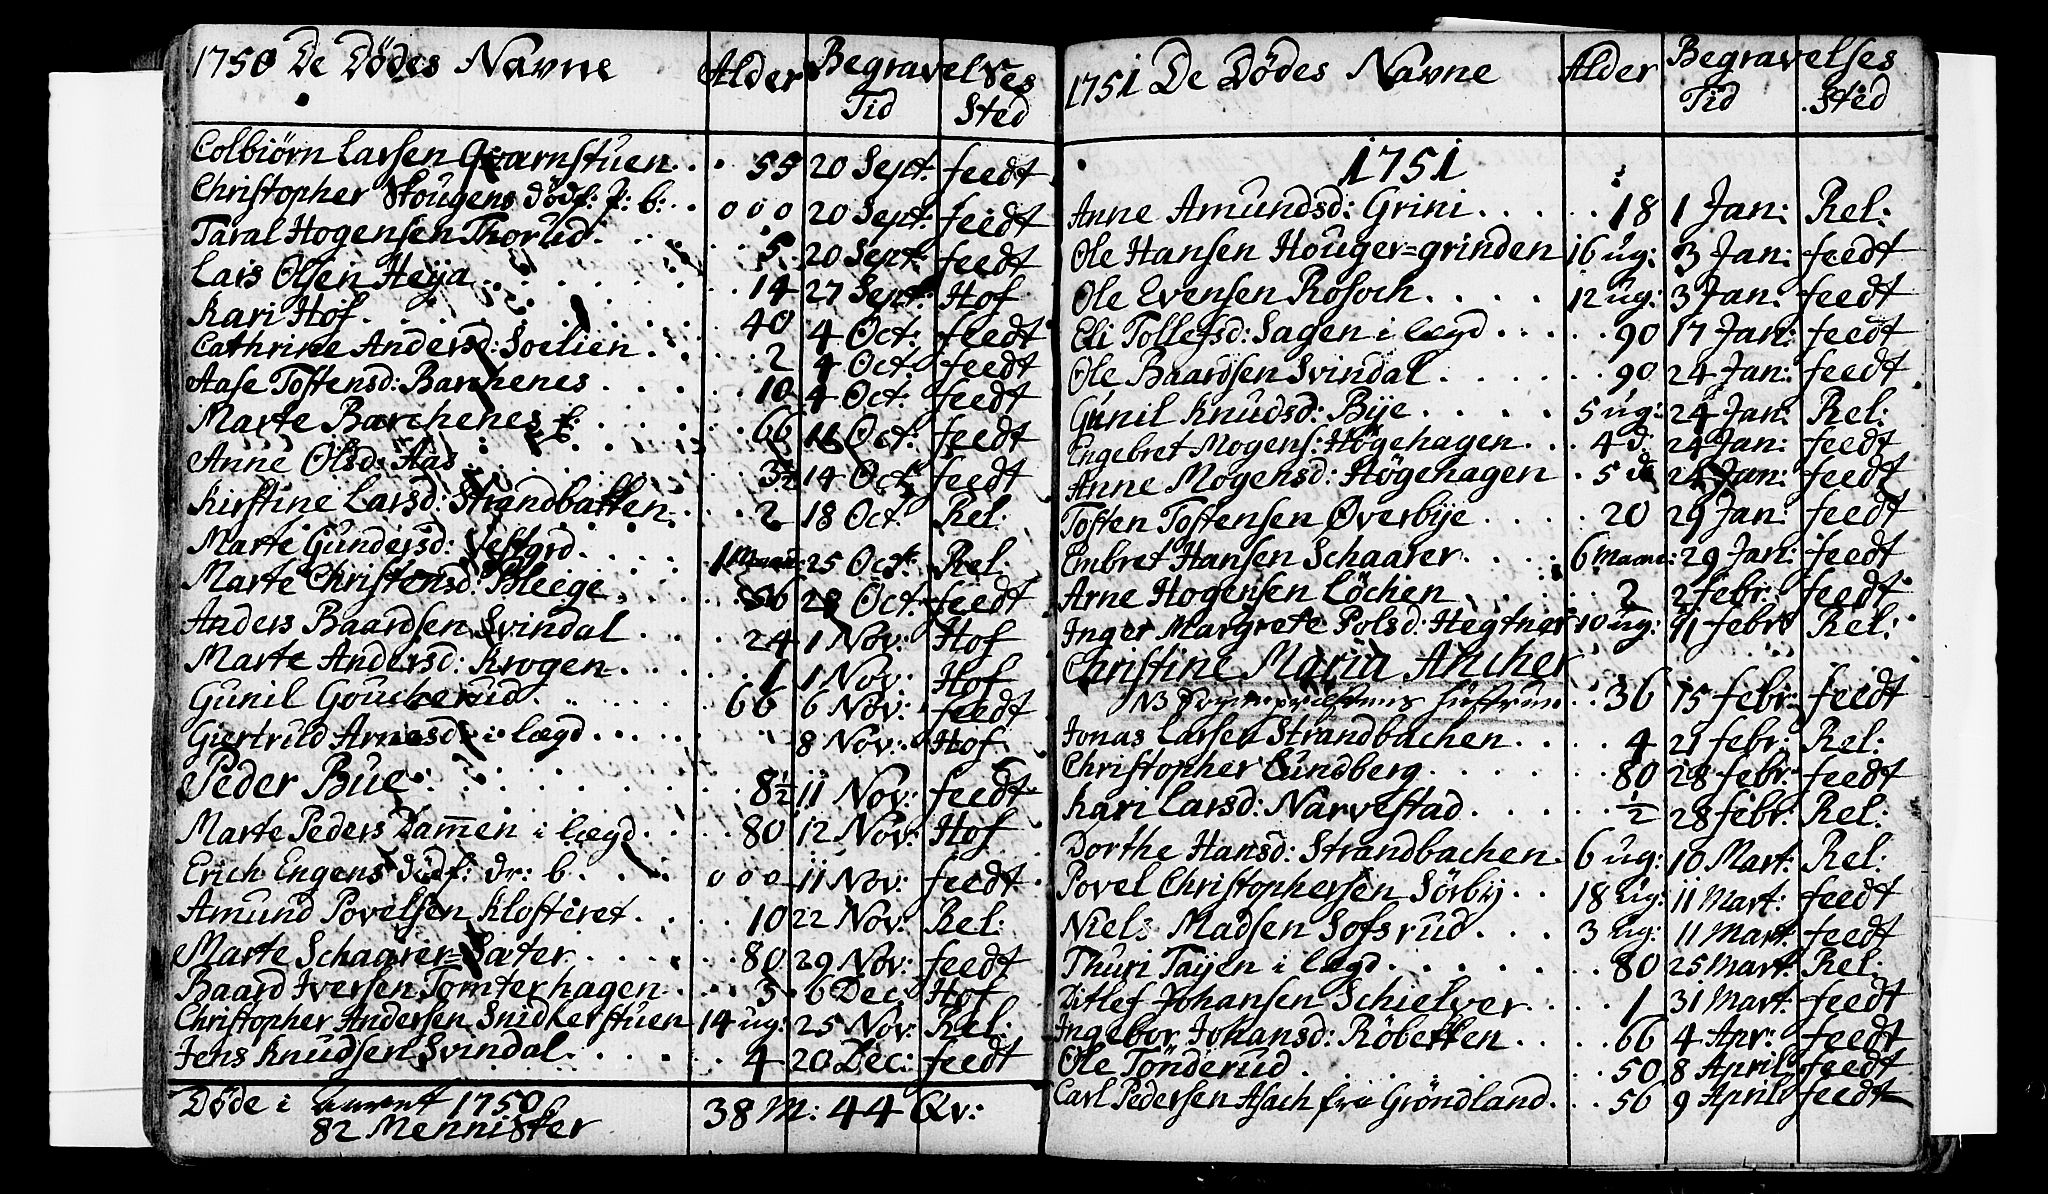 1750 De Dödes Navne Alder Begravelses Tid Sted
Colbiörn Larsen Qvarnstuen . . 55 20 Sept: feedt
Christopher Skougens dödf: p: b: . . 0 0 0 20 Sept: feedt
Taral Hogensen Thorud . . 5 20 Sept: feedt
Lars Olsen Heija . . 14 27 Sept: Hof
Kari Hof . . 40 4 Oct: feedt
Cathrine Andersd: Soelien . . 2 4 Oct: feedt
Aase Tostensd: Barchenes . . 10 4 Oct: feedt
Marte Barchenes . . 66 Oct: feedt
Anne Olsd: Aas . . 3½ 14 Oct: feedt
Kirstine Larsd: Strandbakken . . 2 18 Oct Rel:
Marte Gundersd: Vestgrd . . 1 25 Oct: Rel:
Marte Christensd: Bleige . . 28 Oct: feedt
Anders Baardsen Svindal . . 24 1 Nov: Hof
Marte Andersd: Krogen . . 1 1 Nov: Hof
Gunil Goucherud . . 66 6 Nov: feedt
Giertrud Arnesd: i lægd . . 8 Nov: Hof
Peder Bue . . 8½ 11 Nov: feedt
Marte Peders Dam̅en i lægd . . 80 12 Nov: Hof
Erich Engens dödf: dr: b: . . 0 0 0 11 Nov: feedt
Amund Povelsen Klosteret . . 10 22 Nov: Rel:
Marte Schaarer=Sater . . 80 29 Nov: feedt
Baard Iversen Tomterhagen . . 3 6 Dec Hof
Christopher Andersen Snidkerstuen 14 ug: 25 Nov: Rel:
Jens Knudsen Svindal . . 4 20 Dec: feedt
Döde i aaret 1750
82 Mennisker 38 M: 44 Qv:
1751 De Dödes Navne Alder Begravelses Tid Sted
1751
Anne Amundsd: Grini . . 18 1 Jan: Rel:
Ole Hansen Houger=grinden 16 ug: 3 Jan: feedt
Ole Evensen Rosoch . . 12 ug: 3 Jan: feedt
Eli Tollefsd: Sagen i lægd . . 90 17 Jan: feedt
Ole Baardsen Svindal . . 90 24 Jan: feedt
Gunil Knudsd: Bije . . 5 ug: 24 Jan: Rel:
Engebret Mogens: Högehagen . . 4 d: 24 Jan: feedt
Anne Mogensd: Högehagen . 5 d 24 Jan: feedt
Tosten Tostensen Øverbije . . 20 29 Jan: feedt
Embret Hansen Schaarer . . 6 Maane: 29 Jan: feedt
Arne Hogensen Löchen . . 2 2 febr: feedt
Inger Margrete Polsd: Hegtner 10 ug: 11 febr: Rel:
Christine Maria Ancher
NB Hustrue . . 36 15 febr: feedt
Jonas Larsen Strandbachen . . 4 21 febr: Rel:
Christopher Lundberg . . 80 28 febr: feedt
Kari Larsd: Narvestad . . ½ 28 febr: Rel:
Dorthe Hansd: Strandbachen . 6 ug: 10 Mart: Rel:
Povel Christophersen Sörby . . 18 ug: 11 Mart: feedt
Niels Madsen Sofsrud . . 3 ug: 11 Mart: feedt
Thuri Taijen i lægd . . 80 25 Mart: Rel:
Ditlef Johansen Schielver . . 1 31 Mart: feedt
Ingebor Johansd: Röbekken . . 66 4 Apr: feedt
Ole Tönderud . . 50 8 April: feedt
Carl Pedersen Asach fra Gröndland . . 50 9 April: feedt